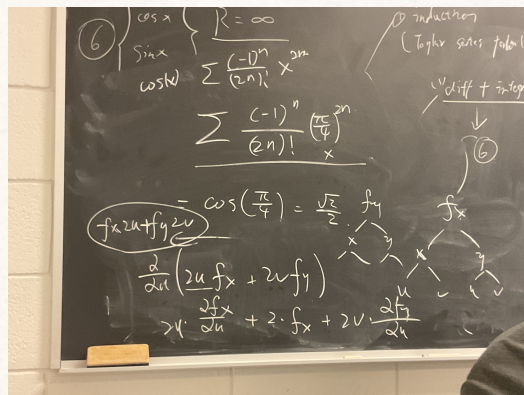 ⑥ { cos x
sin x } R = ∞
cos(x) ∑ (-1)^n/(2n)! x^{2n}
∑ (-1)^n/(2n)! (π/4)^{2n}
x
= cos(π/4) = √2/2
fx2u+fy2v
∂/∂u (2u fx + 2v fy)
2u · ∂fx/∂u + 2 · fx + 2v · ∂fy/∂u
fy
x y
① induction
(Taylor series
(1) diff +
↓
⑥
fx
x y
u v u v